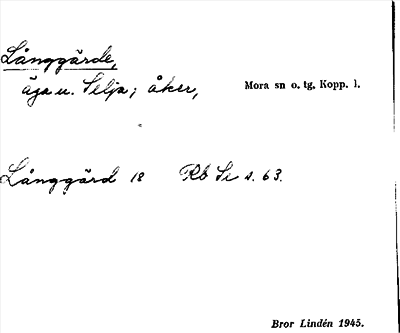 Långgärde,
äga u. Selja; åker, Mora sn o. tg, Kopp. l.
Långgärd 18 Rb Si s. 63.
Bror Lindén 1945.